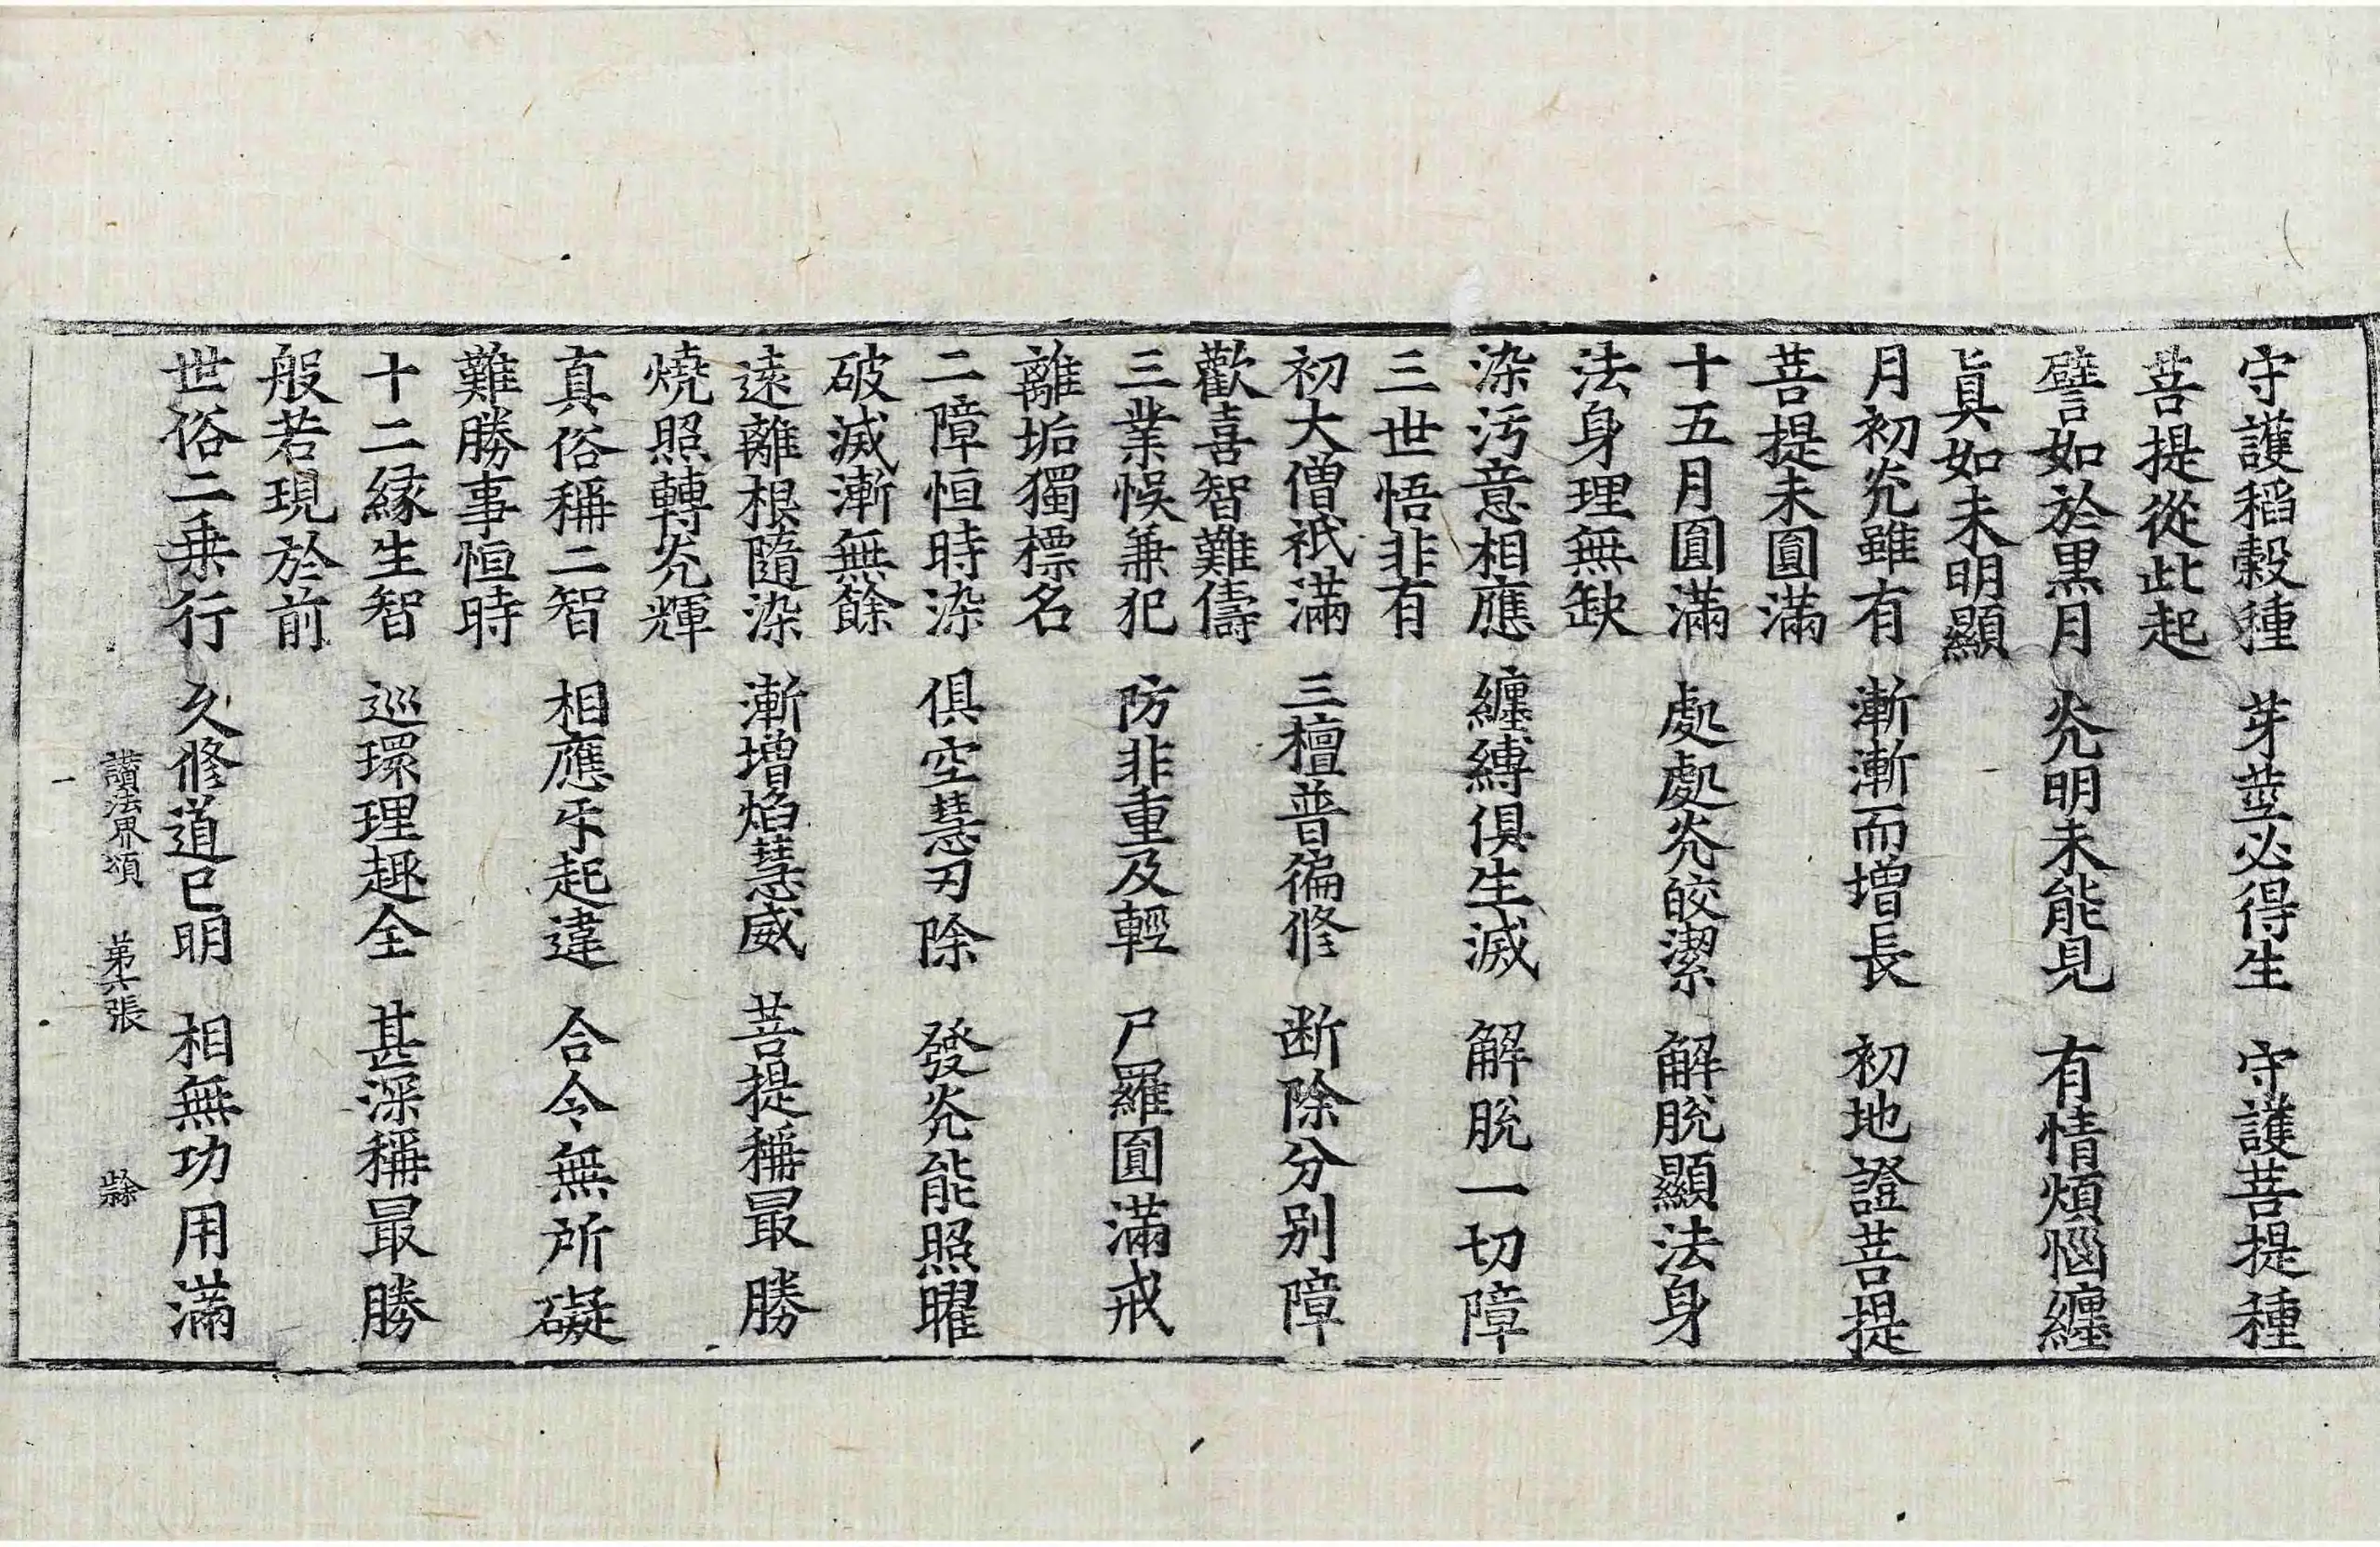 守護稻穀種　芽莖必得生　守護菩提種
菩提從此起
譬如於黒月　灮明未能見　有情煩惱纏
眞如未明顯
月初灮雖有　漸漸而增長　初地證菩提
菩提未圎滿
十五月圎滿　處處灮皎潔　解脫顯法身
法身理無缺
染汚意相應　纏縛俱生滅　解脫一切障
三世悟非有
初大僧祇滿　三檀普徧修　断除分别障
歡喜智難儔
三業悞兼犯　防非重及輕　尸羅圎滿戒
離垢獨標名
二障恒時染　俱空慧刃除　發灮能照曜
破滅漸無餘
遠離根隨染　漸增焰慧威　菩提稱最勝
燒照轉灮輝
真俗稱二智　相應乐起違　合令無所礙
難勝事恒時
十二緣生智　巡環理趣全　甚深稱最勝
般若現於前
世俗二乗行　久修道已明　相無功用滿
讚法界頌　第六張